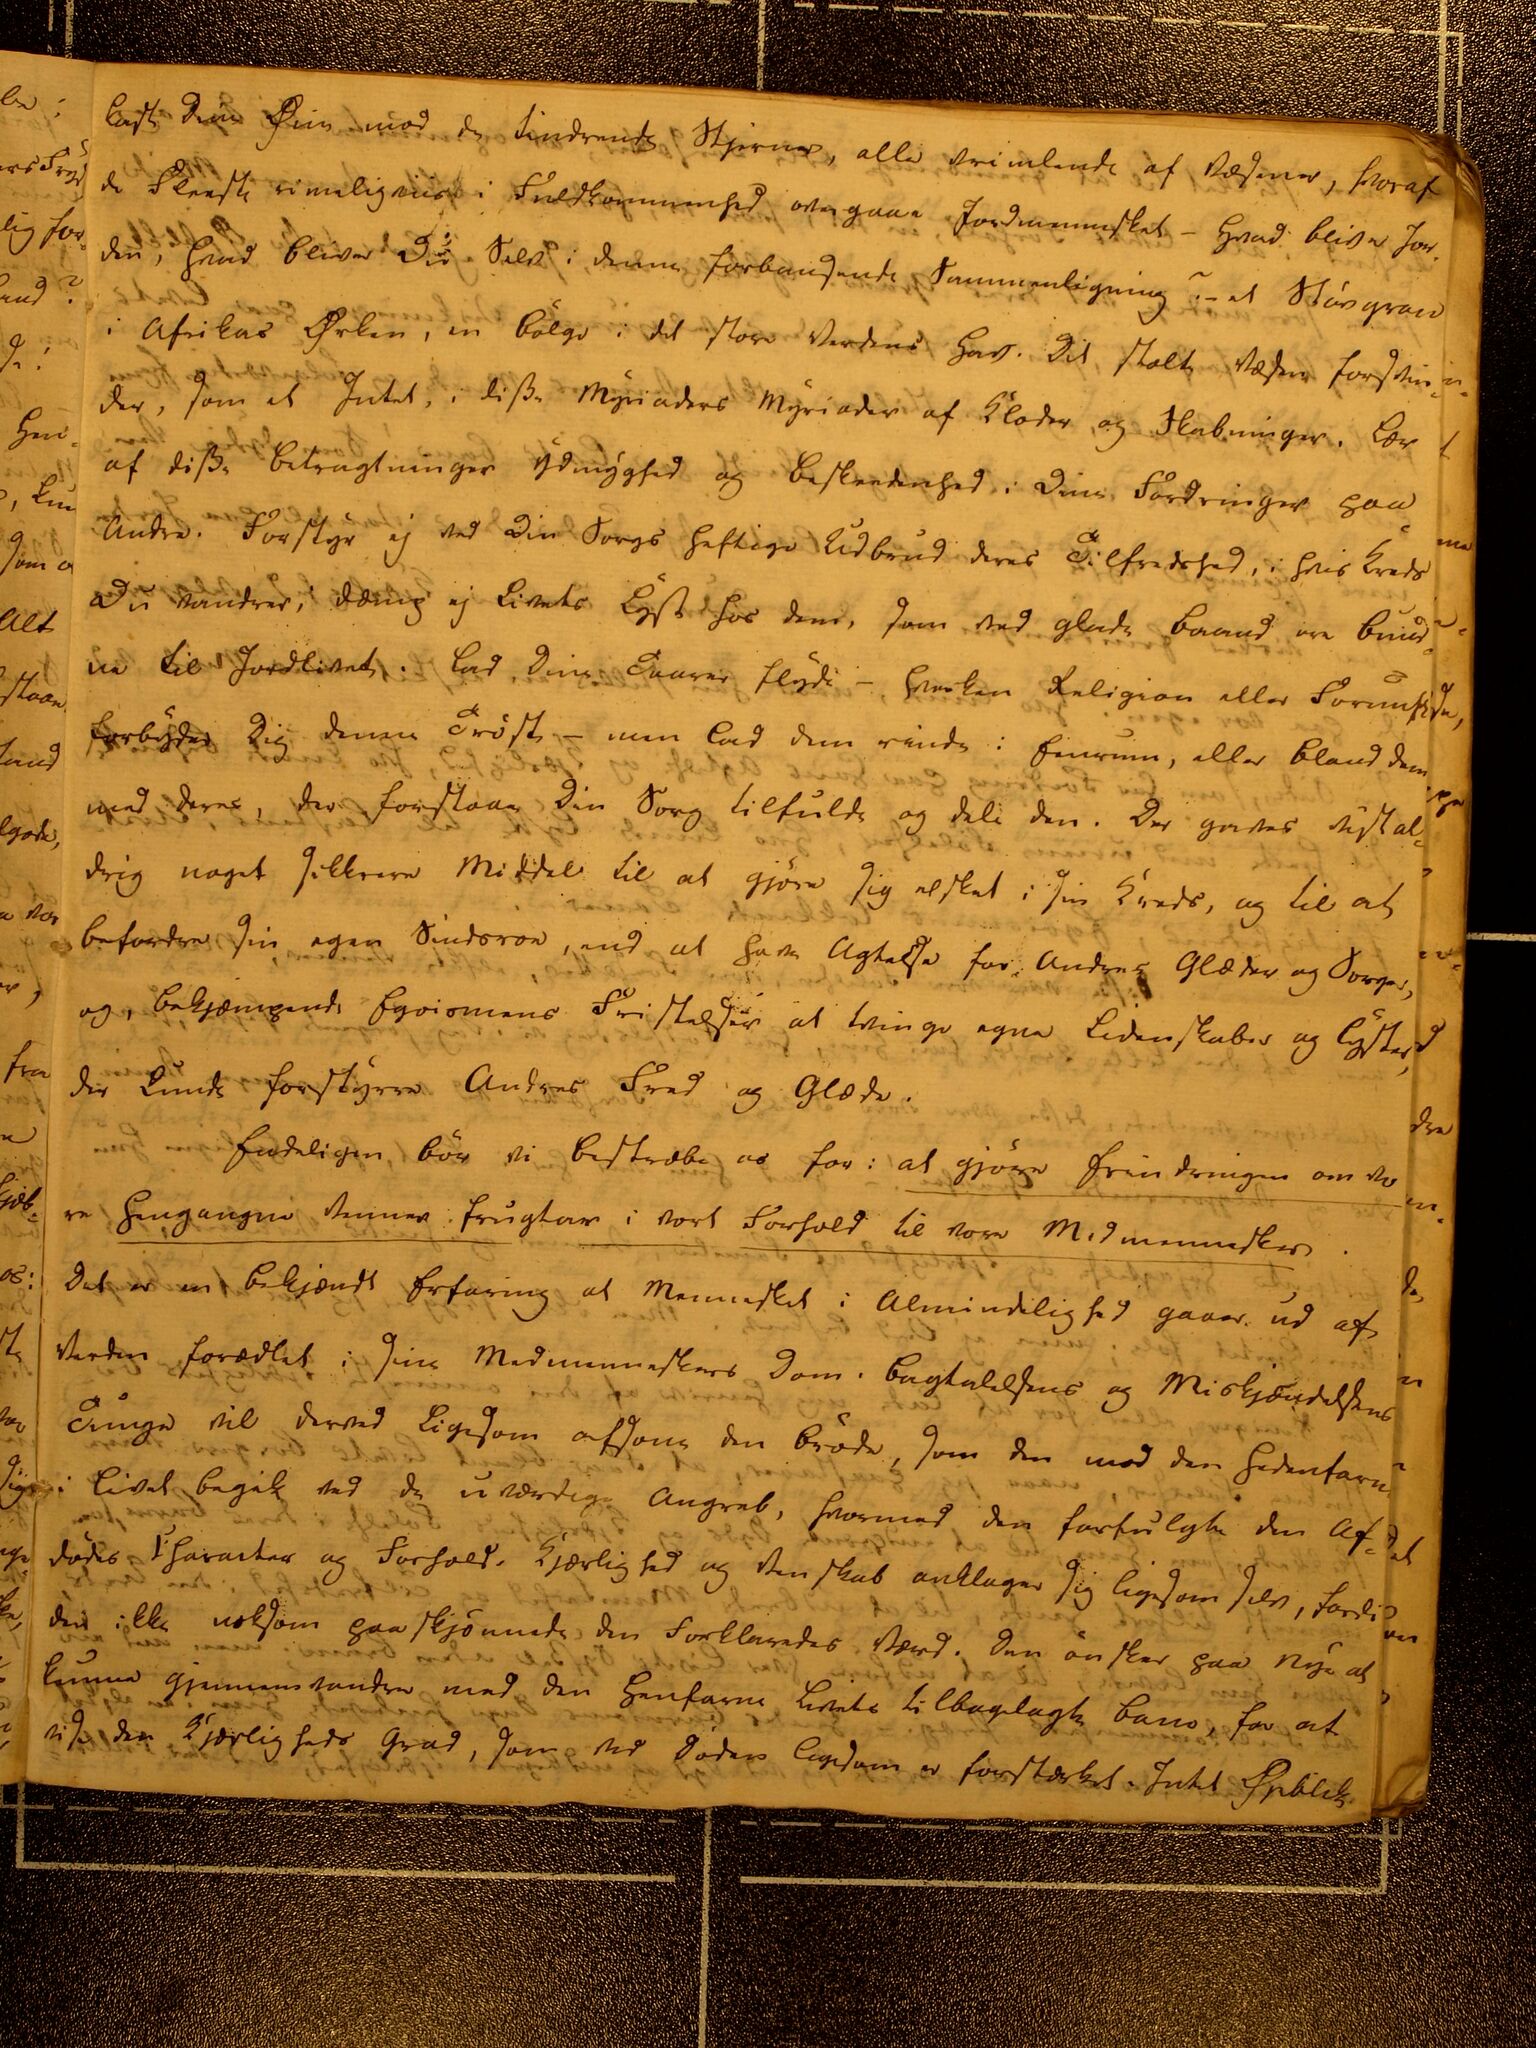 kast Dine Øine mod de tindrende Stjerner, alle vrimlende af Væsener, hvoraf
de Fleeste rimeligviis i Fuldkommenhed overgaae Jordmennesket – hvad bliver Jor-
den, hvad bliver Du Selv i denne forbausende Sammenligning? – et Støvgran
i Afrikas Ørken, en Bølge i det store Verdens Hav. Dit stolte Væsen forsvin-
der, som et Intet, i disse Myriaders Myriader af Kloder og Skabninger. Lær
af disse Betragtninger Ydmyghed og Beskeedenhed i Dine Fordringer paa
Andre. Forstyr ej ved Din Sorgs heftige Udbrud deres Tilfredshed, i hvis Kreds
Du vandrer, dæmp ej Livets Lyst hos dem, som ved glade Baand ere bund-
ne til Jordlivet. Lad Dine Taarer flyde – hverken Religion eller Fornuft
forbyder Dig denne Trøst – men lad dem rinde i Eenrum, eller bland dem
med deres, der forstaae Din Sorg tilfulde og dele den. Der gaves vist al-
drig noget sikkrere Middel til at gjøre sig elsket i sin Kreds, og til at
befordre sin egen Sindsroe, end at have Agtelse for Andres Glæder og Sorger,
og, bekjæmpende Egoismens Fristelser at tvinge egne Lidenskaber og Lyster,
der kunde forstyrre Andres Fred og Glæde.
Endeligen bør vi bestræbe os for: at gjøre Erindringen om vo
re hengangne Venner frugtbar i vort Forhold til vore Medmennesker.
Det er en bekjændt Erfaring at Mennesket i Almindelighed gaaer ud af
Verden forædlet i sine Medmenneskers Dom. Bagtalelsens og Miskjændelsens
Tunge vil derved ligesom afsone den Brøde, som den mod den Hedenfarne
i Livet begik ved de uværdige Angreb, hvormed den forfulgte den Af-
dødes Character og Forhold. Kjærlighed og Venskab anklager sig ligesom selv, fordi
den ikke noksom paaskjønnede den Forklaredes Værd. Den ønsker paa Nye at
kunne gjennemvandre med den Henfarne Livets tilbagelagte Bane, for at
vise den Kjærligheds Grad, som ved Døden ligesom er forstærket. Intet Øieblik